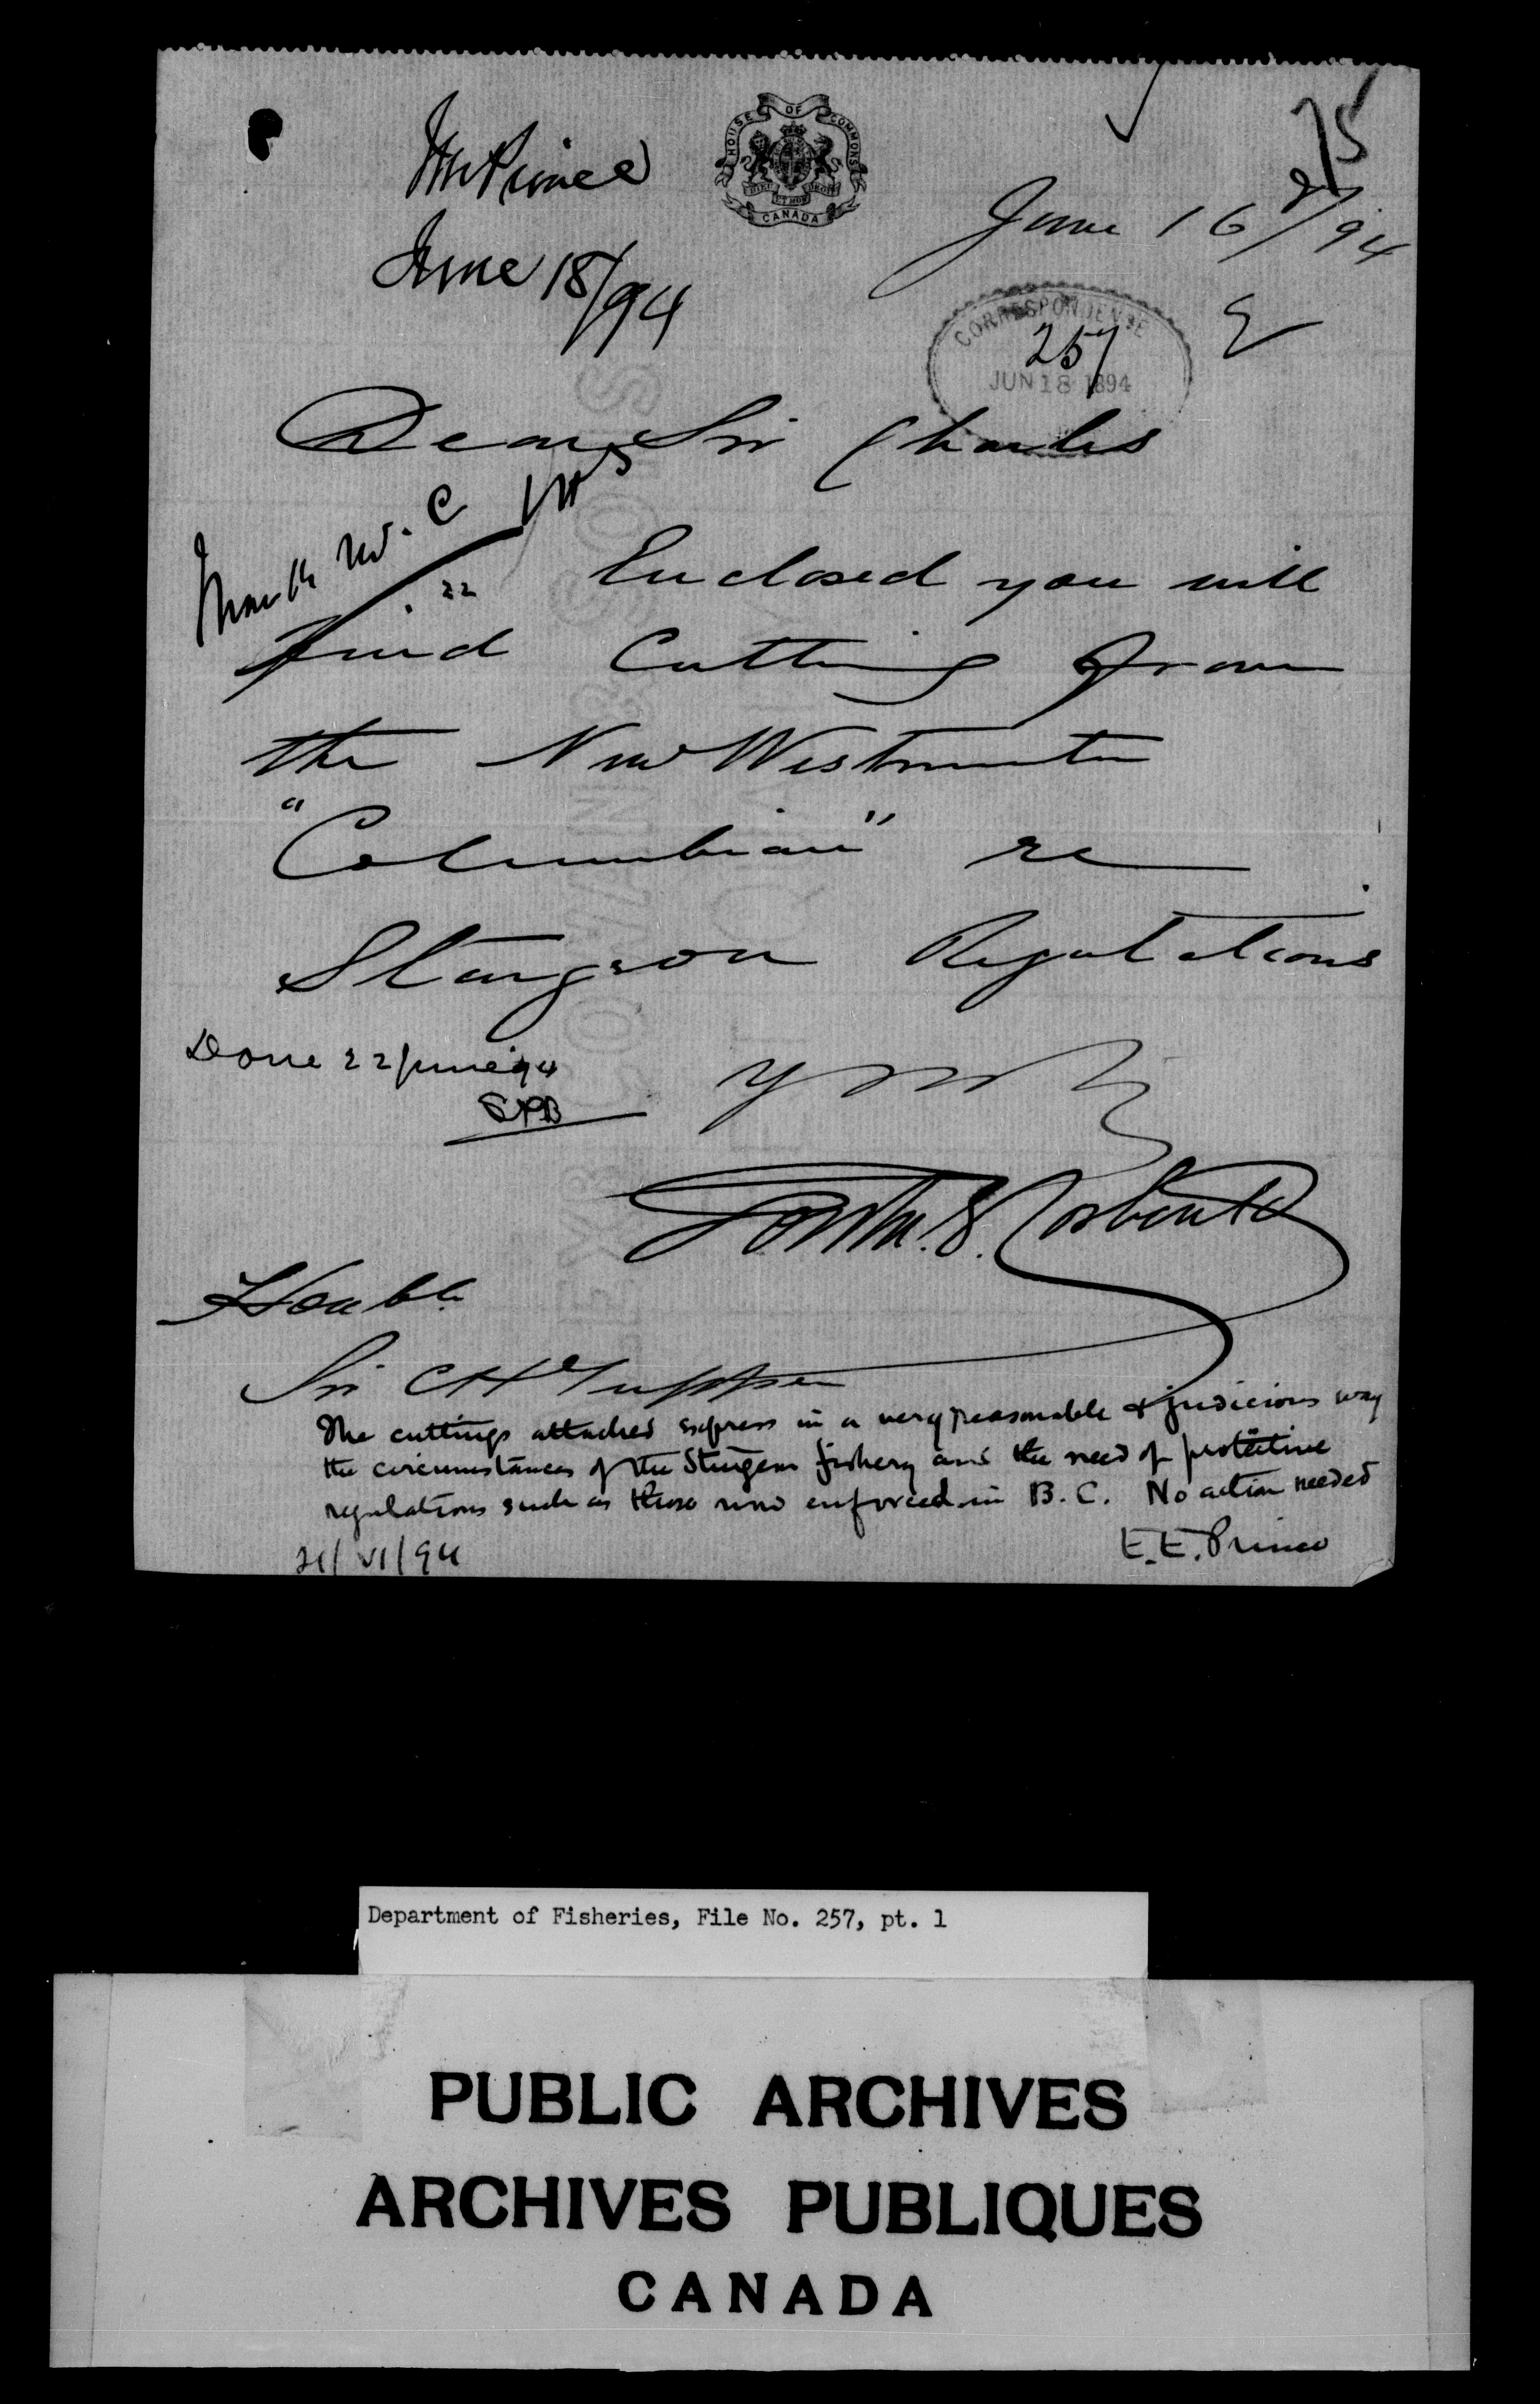 HOUSE OF COMMONS
DIEU ET MON DROIT
CANADA
75
Mr Prince
June 18/94
June 16/94
CORRESPONDENCE
257
JUN 18 1894
Dear Sir Charles
Thank Mr. C
22
Enclosed you will
find Cutting from
the New Westminster
"Columbian" re
Sturgeon Regulations
Done 22 June 94
SPB
Yours
Gordon E. Corbould
Honble
Sir C H Tupper
The cuttings attached express in a very reasonable & judicious way
the circumstances of the Sturgeon fishery and the need of protective
regulations such as those now enforced in B.C. No action needed
E.E. Prince
21/VI/94
Department of Fisheries, File No. 257, pt. 1
PUBLIC ARCHIVES
ARCHIVES PUBLIQUES
CANADA